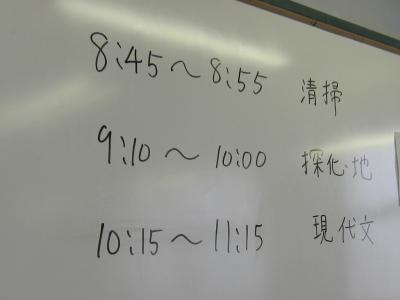 8:45〜8:55 清掃
9:10〜10:00 探化・地
10:15〜11:15 現代文